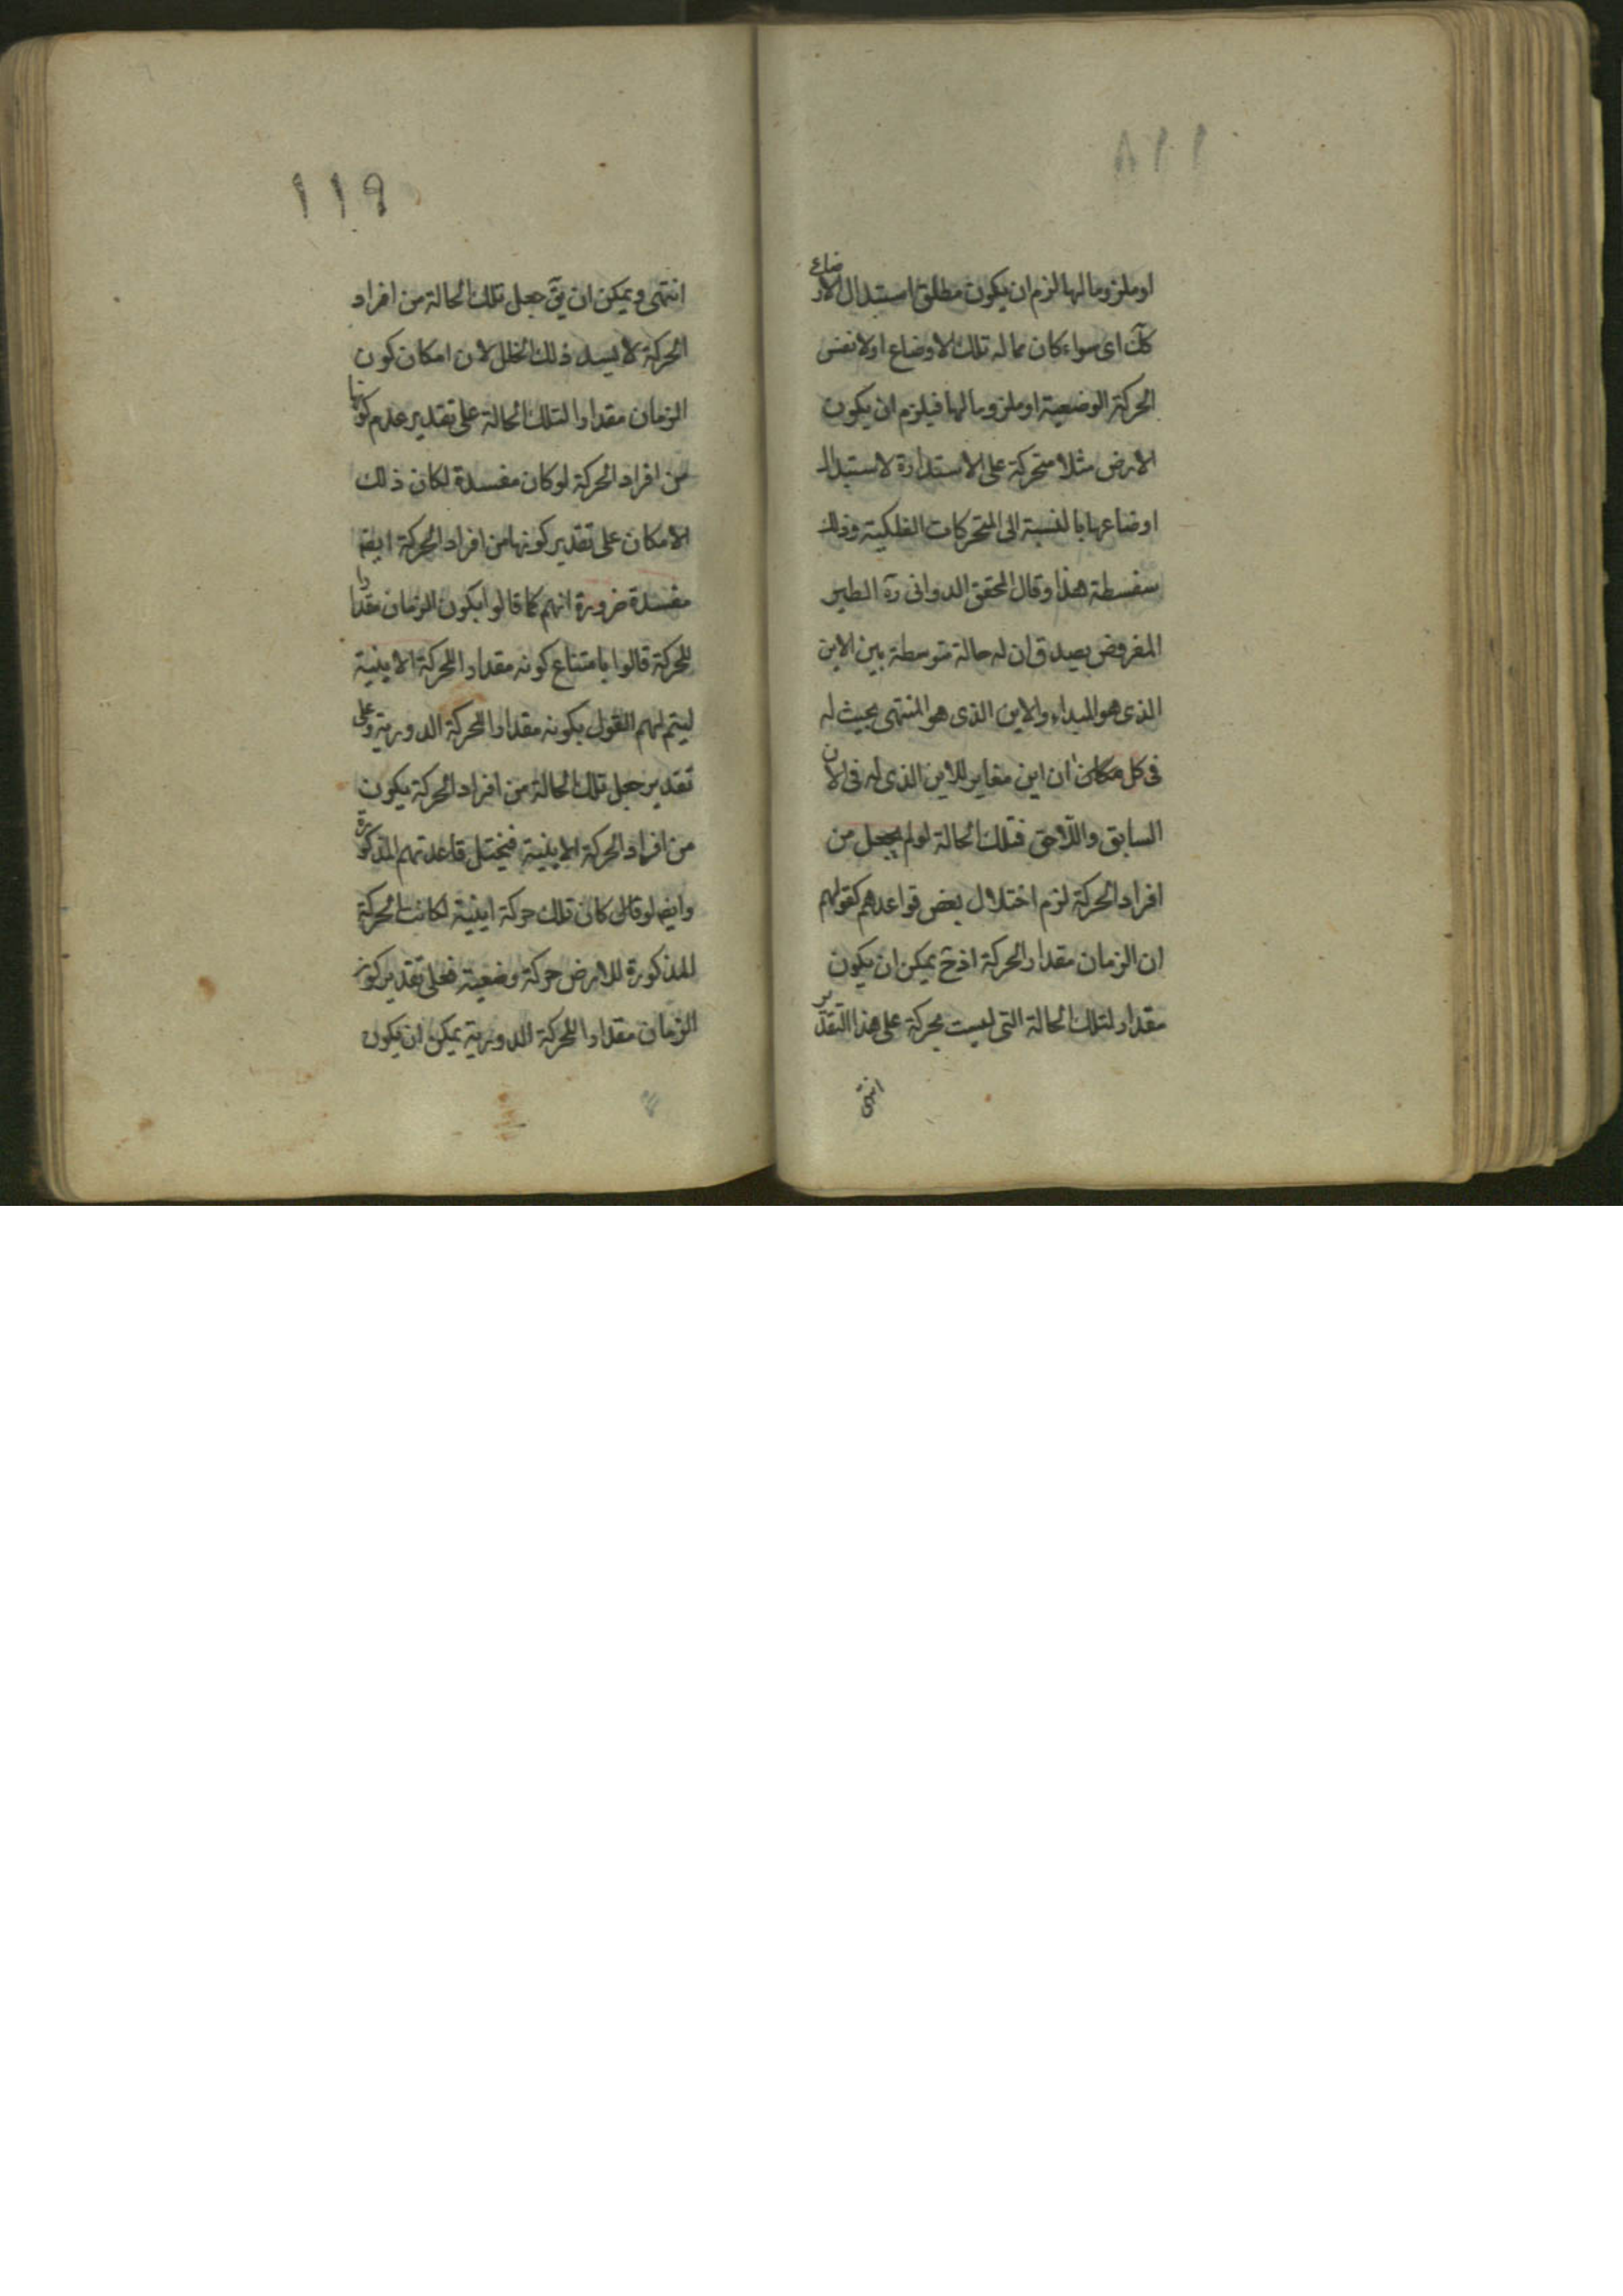 او ملزوما لها لزم ان يكون مطلق استبدال الاوضاع
كك اى سواء كان مما له تلك الاوضاع اولا نفس
الحركة الوضعية او ملزوما لها فيلزم ان يكون
الارض مثلا متحركة على الاستدارة لاستبدال
اوضاعها بالنسبة الى المتحركات الفلكية وذلك
سفسطة هذا وقال المحقق الدوانى ره الطير
المفروض يصدق ان له حالة متوسطة بين الاين
الذى هو المبداء والاين الذى هو المنتهى بحيث له
فى كل ان اين مغاير للاين الذى له فى الان
السابق واللاحق فتلك الحالة لو لم يجعل من
افراد الحركة لزم اختلال بعض قواعدهم كقولهم
ان الزمان مقدار الحركة اذ ح يمكن ان يكون
مقدار لتلك الحالة التى ليست بحركة على هذا التقدير
انتهى
١١٩
انتهى ويمكن ان يق جعل تلك الحالة من افراد
الحركة لا يسد ذلك الخلل لان امكان كون
الزمان مقدارا لتلك الحالة على تقدير عدم كونها
من افراد الحركة لو كان مفسدة لكان ذلك
الامكان على تقدير كونها من افراد الحركة ايضا
مفسدة ضرورة انهم كما قالوا بكون الزمان مقدارا
للحركة قالوا بامتناع كونه مقدارا للحركة الاينية
ليتم لهم القول بكونه مقدارا للحركة الدورية وعلى
تقدير جعل تلك الحالة من افراد الحركة يكون
من افراد الحركة الاينية فيختل قاعدتهم المذكورة
وايضا لو كان تلك حركة اينية لكانت الحركة
المذكورة للارض حركة وضعية فعلى تقدير كون
الزمان مقدارا للحركة الدورية يمكن ان يكون